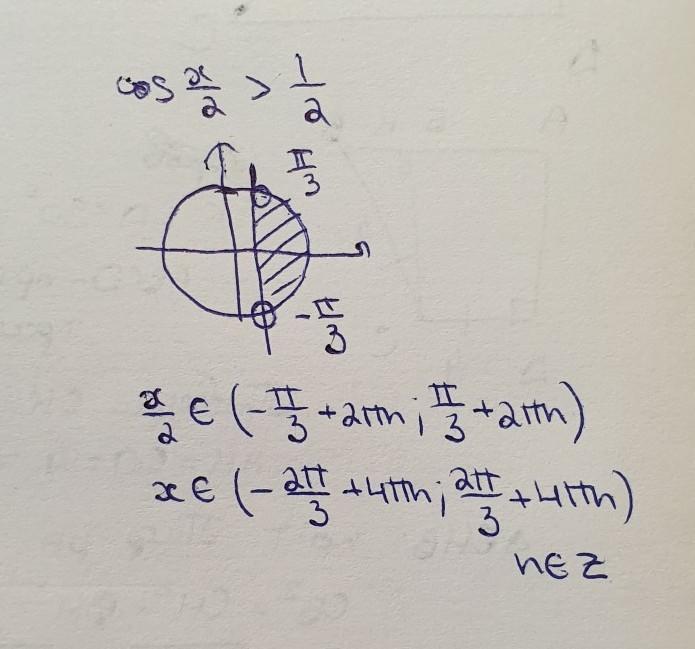 cos x/2 > 1/2
π/3
-π/3
x/2 ∈ (-π/3 + 2πn; π/3 + 2πn)
x ∈ (-2π/3 + 4πn; 2π/3 + 4πn)
n ∈ Z